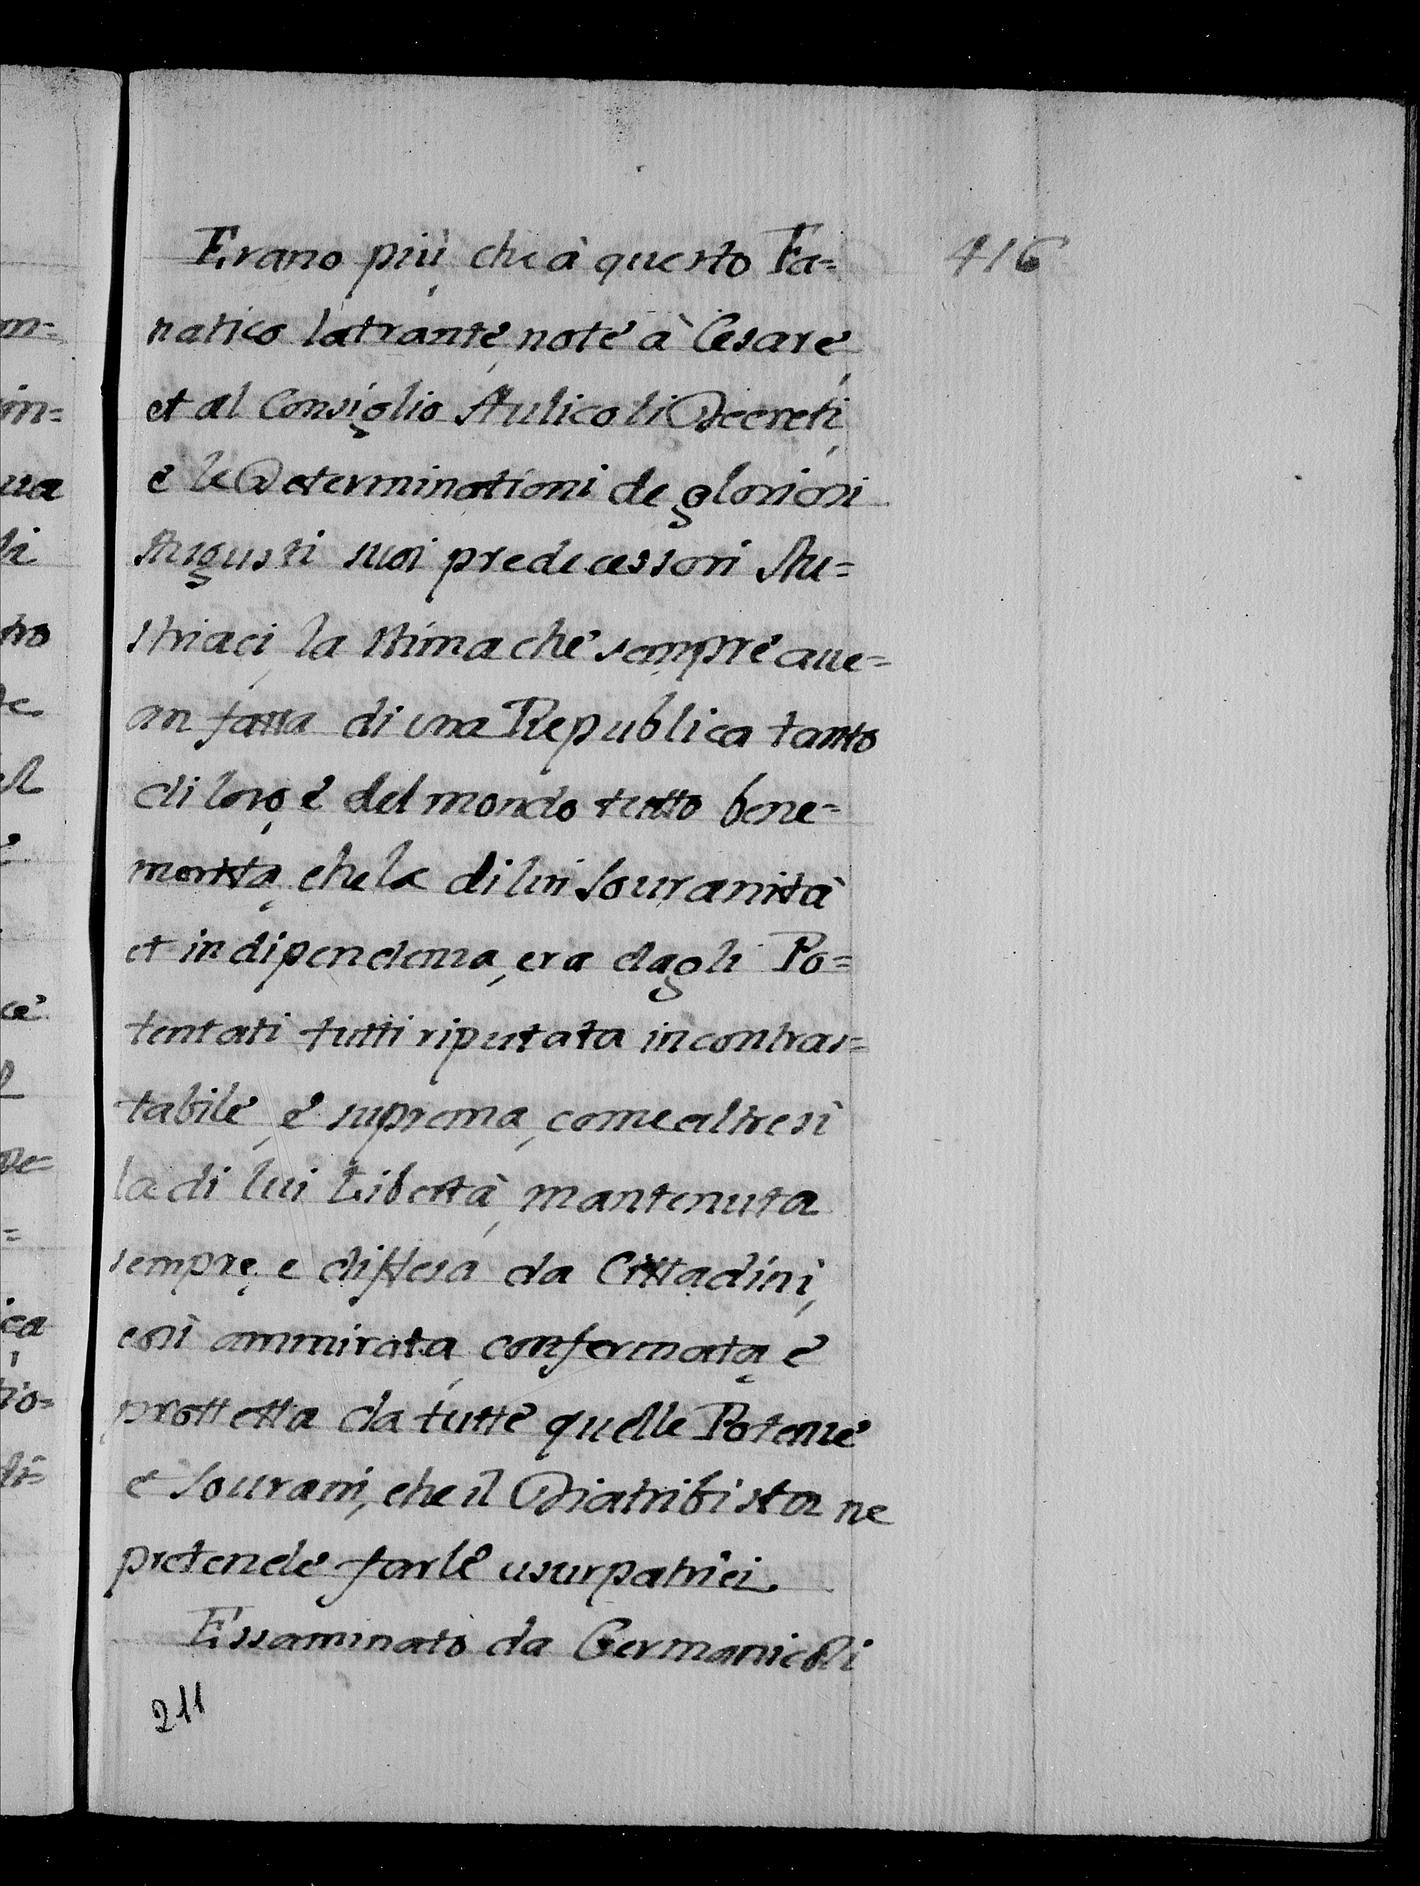 Erano più, che à questo Fa=
416
natico latrante, note à Cesare,
et al Consiglio Aulico li Decreti,
e le Determinationi de gloriosi
Augusti suoi predecessori Au=
striaci, la stima che sempre aue=
an fatta di una Republica tanto
di loro, e del mondo tutto bene=
merita, che la di lui Souranità
et indipendenza, era dagli Po=
tentati tutti riputata incontras=
tabile, e suprema, come altresì
la di lui Libertà, mantenuta
sempre, e diffesa da Cittadini,
così ammirata, confermata, e
prottetta da tutte quelle Potenze
e Sourani, che il Diatribista ne
pretende farle usurpatrici.
Essaminato da Germanico li
211
m=
in=
ua
li
tro
ce
pe=
=
ica
tio=
di=